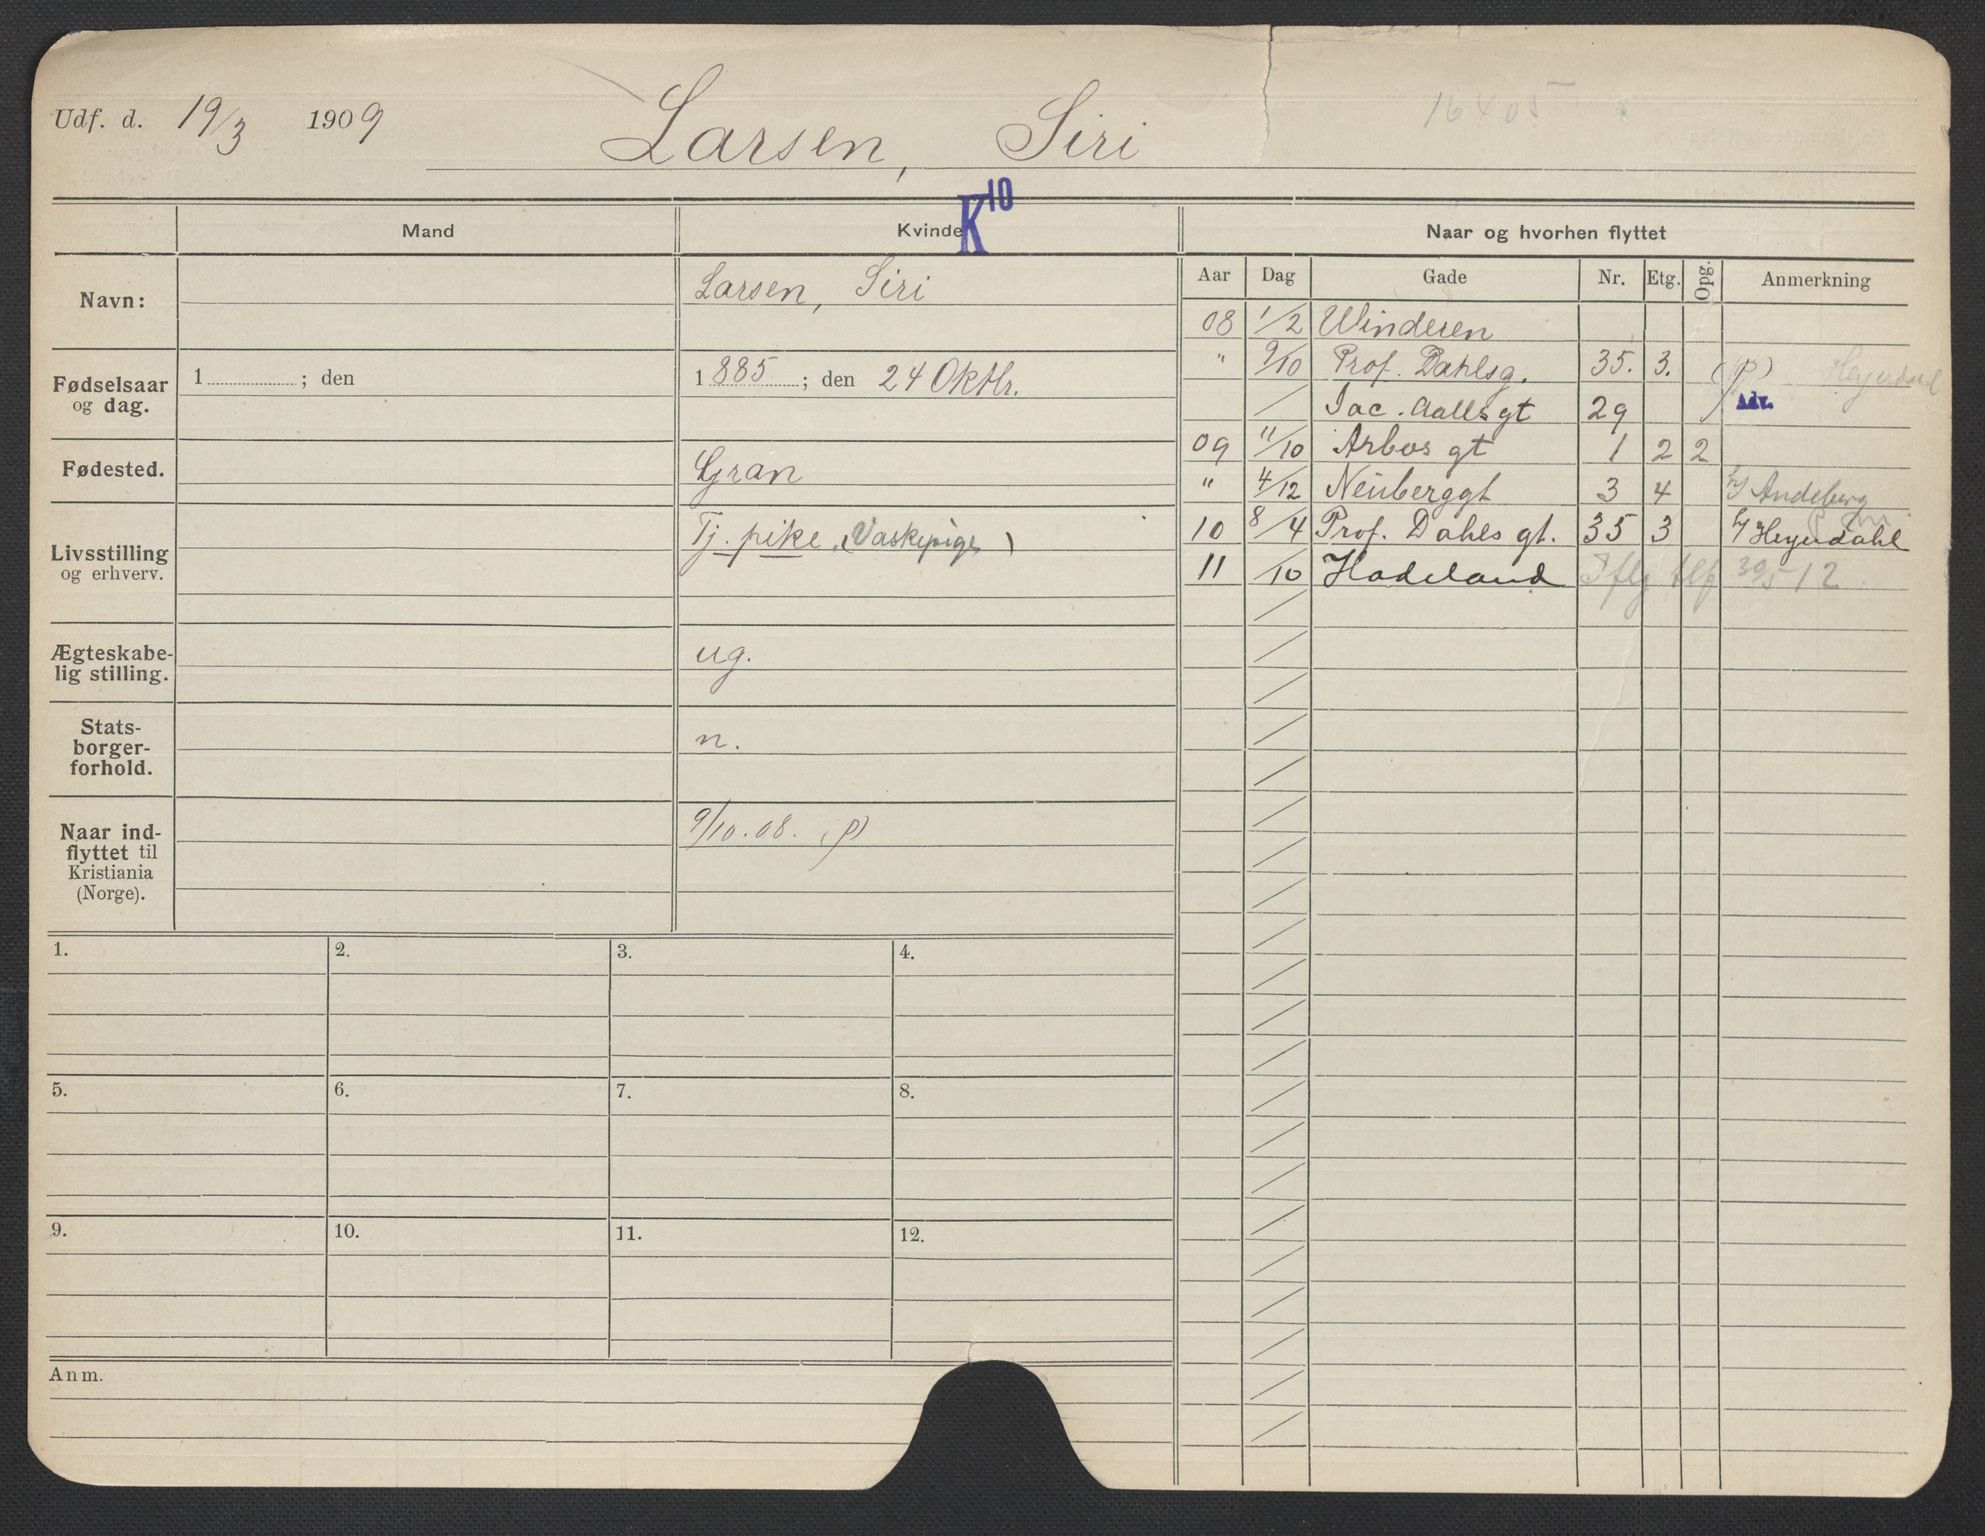 Udf. d. 19/3 1909 Larsen, Siri 16405
K10
Mand Kvinde Naar og hvorhen flyttet
Aar Dag Gade Nr. Etg. Opg. Anmerkning
Navn: Larsen, Siri
Fødselsaar og dag. 1 ; den 1885 ; den 24 Oktbr.
Fødested. Gran
Livsstilling og erhverv. Tj. pike (Vaskepige)
Ægteskabe-
lig stilling. ug.
Stats-
borger-
forhold. n.
Naar ind-
flyttet til
Kristiania
(Norge). 9/10.08. (p)
08 1/2 Winderen
" 9/10 Prof. Dahlsg. 35. 3. (p) Heyerdahl
/ Jac. Aallsgt 29 Adr.
09 11/10 Arbos gt 1 2 2
" 4/12 Neuberggt 3 4 h/ Andeberg
10 8/4 Prof. Dahls gt. 35 3 h/ Heyerdahl
11 /10 Hadeland Iflg tlf 30/5 12
1. 2. 3. 4.
5. 6. 7. 8.
9. 10. 11. 12.
Anm.